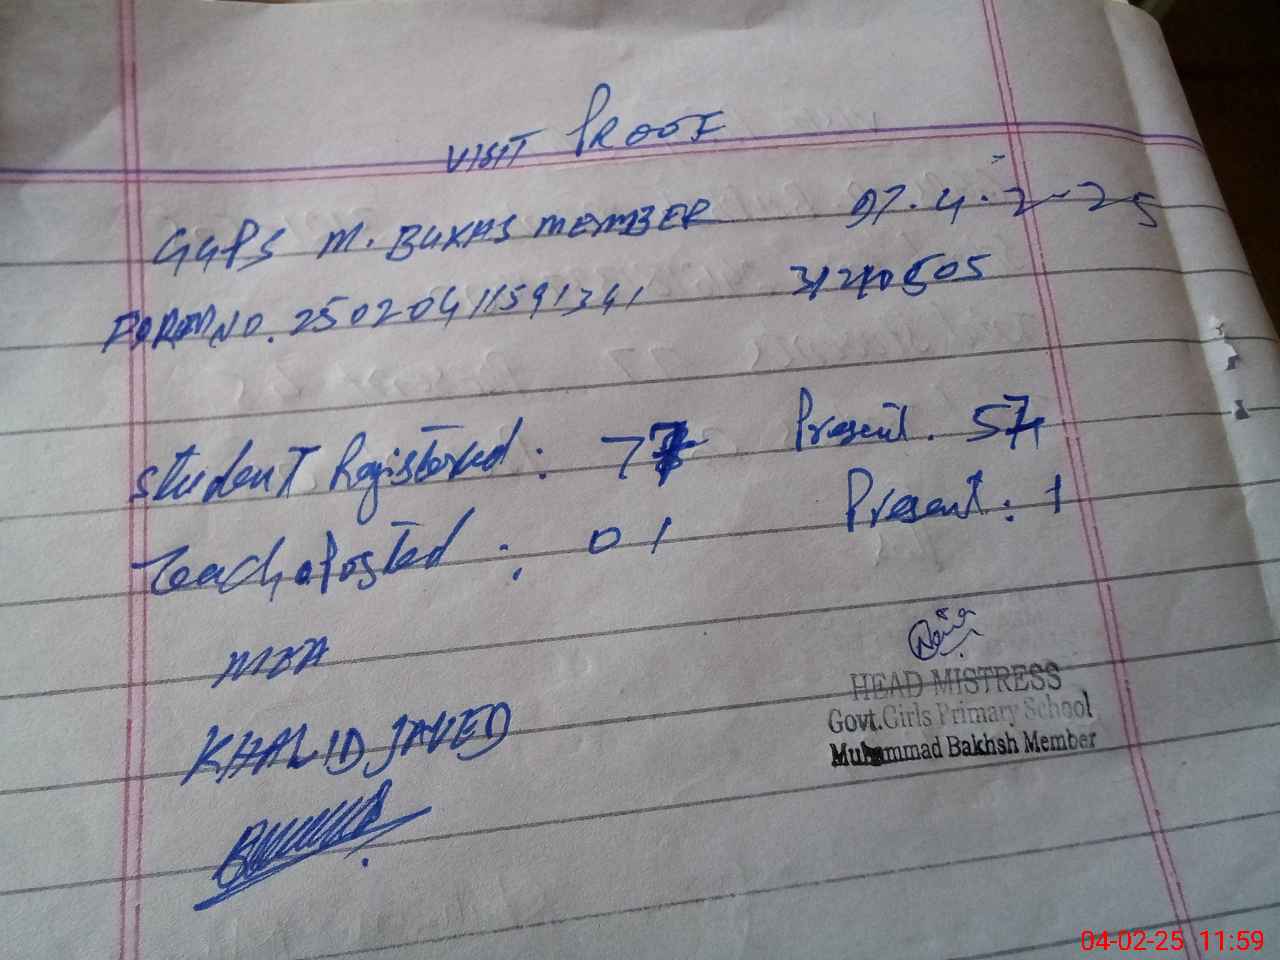 VISIT PROOF
GGPS M. BUKHS MEMBER DT. 4.2-25
FORM NO. 25020411591341 31240505
Student Registered : 77 Present . 57
Teach. Posted : 01 Present : 1
MEA
KHALID JAVED
HEAD MISTRESS
Govt.Girls Primary School
Muhammad Bakhsh Member
04-02-25 11:59